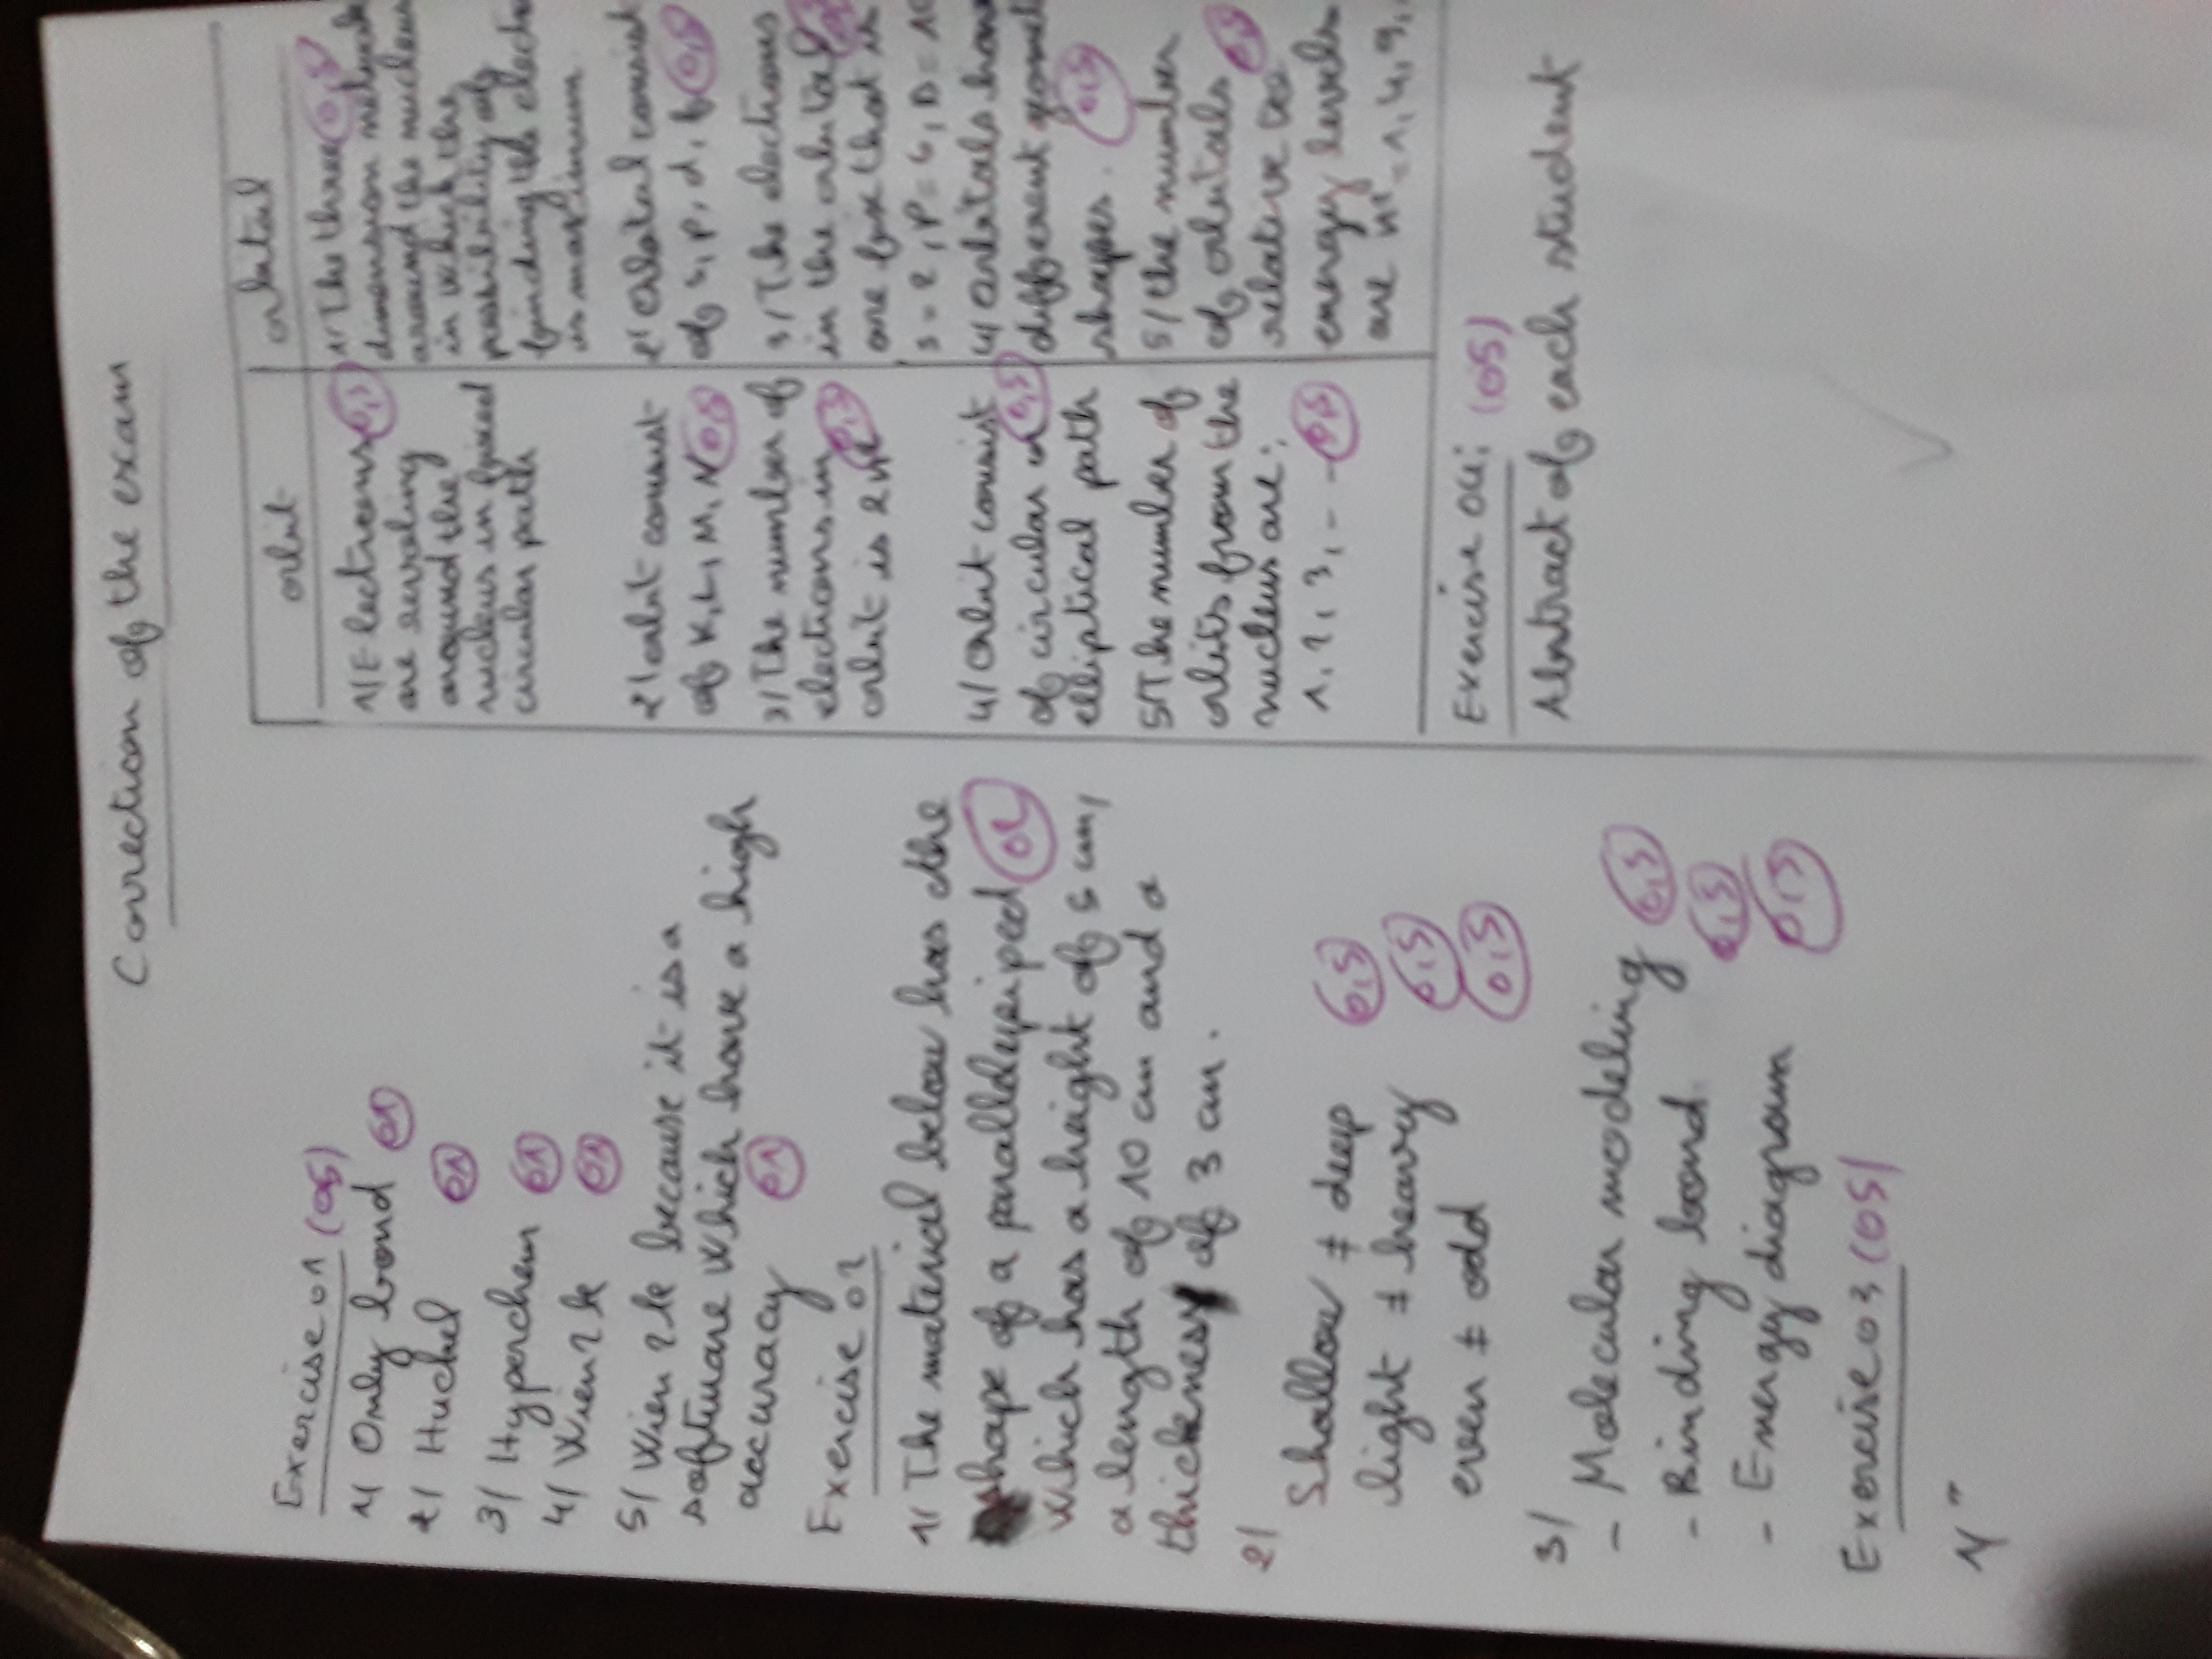 Correction of the exam
Exercise 01 (05)
1/ Only bond 01
2/ Huckel 01
3/ Hyperchem 01
4/ Wien2k 01
5/ Wien2k because it is a
software which have a high
accuracy 01
Exercise 02
1/ The material below has the
shape of a parallelepiped 02
which has a height of 5 cm,
a length of 10 cm and a
thickness of 3 cm.
2/
Shallow ≠ deep 0,5
light ≠ heavy 0,5
even ≠ odd 0,5
3/
- Molecular modeling 0,5
- Binding bond 0,5
- Energy diagram 0,5
Exercise 03 (05)
1/
orbit
1/ Electrons 0,5
are
around the
nucleus in fixed
circular path
2/ orbit consist
of K, L, M, N 0,5
3/ The number of
electrons in 0,5
orbit is 2n²
4/ Orbit consist
of circular or 0,5
elliptical path
5/ The number of
orbits from the
nucleus are:
1, 2, 3, - - 0,5
orbital
1/ The three 0,5
dimension
around the nucleus
in which the
possibility of
finding the
is maximum
2/ Orbital consist
of s, p, d, f 0,5
3/ The electrons
in the orbital
are fix that is
s = 2, P = 6, D = 10
4/ orbitals have
different
shapes. 0,5
5/ the number
of orbitals 0,5
relative to
energy levels
are n² = 1, 4, 9,
Exercise 04: (05)
Abstract of each student